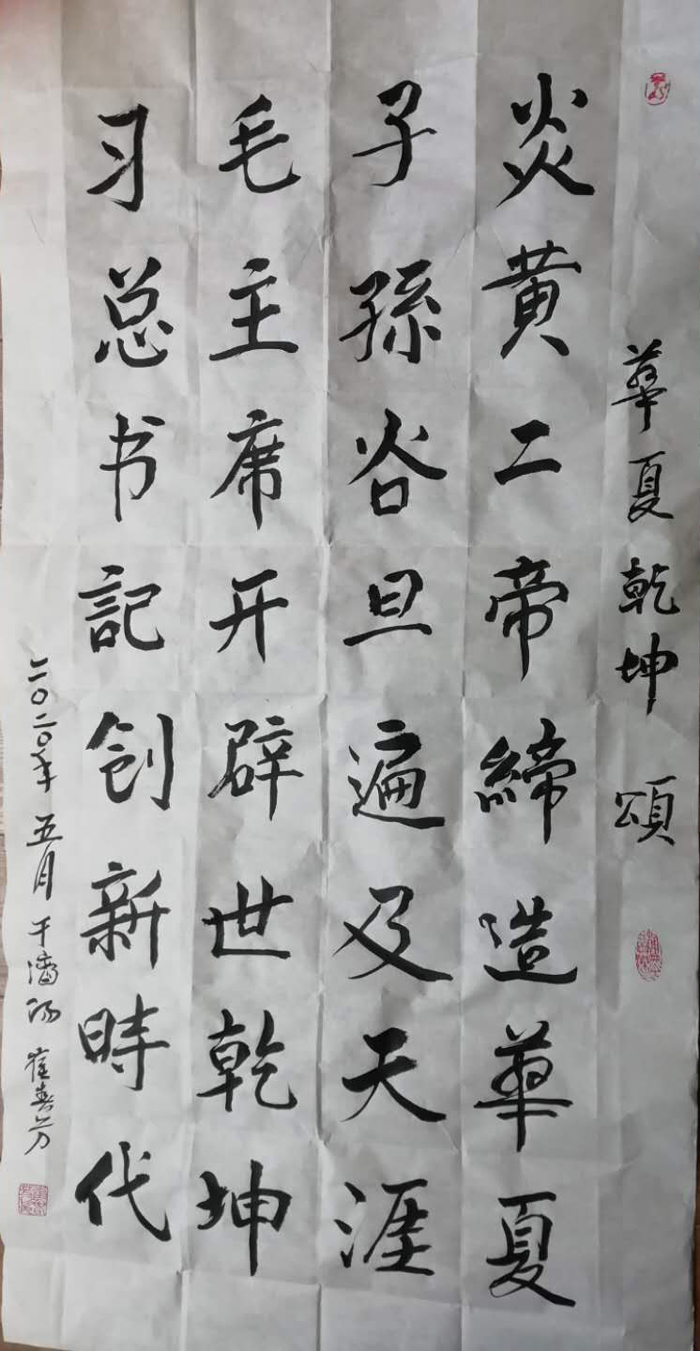 華夏乾坤 頌
炎黄二帝締造華夏
子孫谷旦遍及天涯
毛主席开辟世乾坤
习总书記創新時代
二〇二〇年 五月 于濮阳 崔春芳